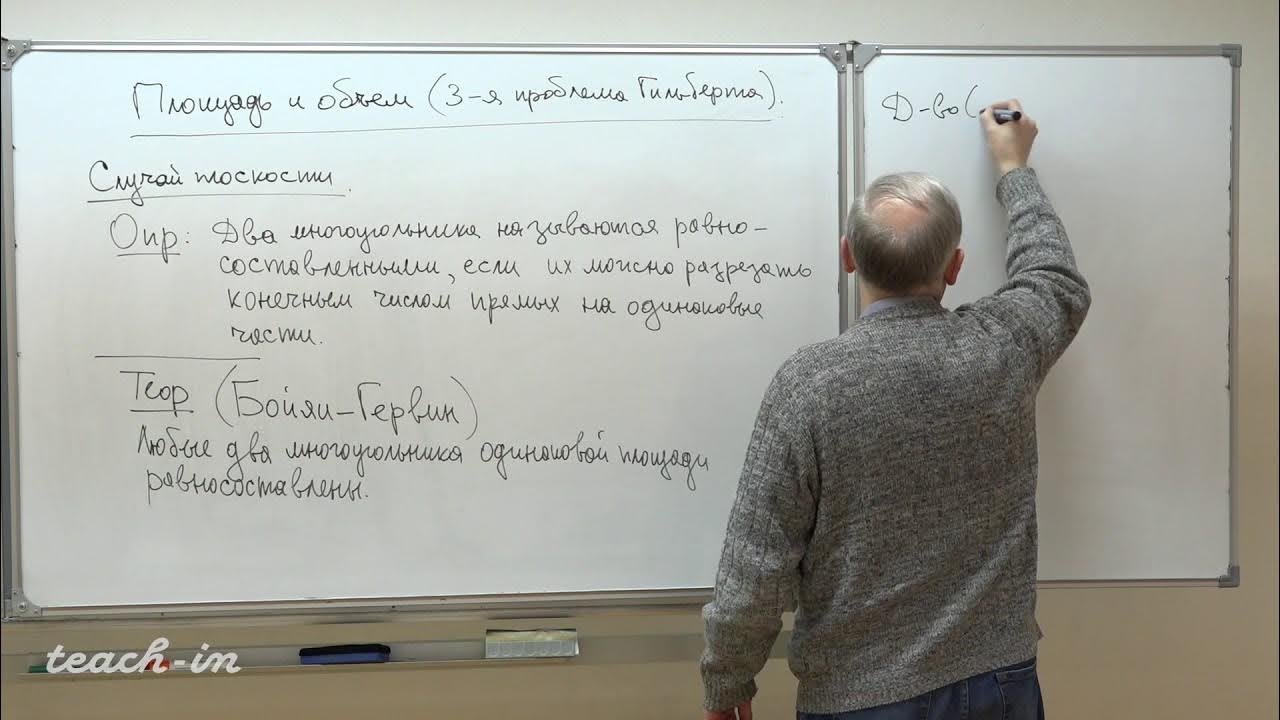 Площадь и объем (3-я проблема Гильберта).
Случай плоскости.
Опр: Два многоугольника называются равно-
составленными, если их можно разрезать
конечным числом прямых на одинаковые
части.
Теор (Бойяи-Гервин)
Любые два многоугольника одинаковой площади
равносоставлены.
Д-во(
teach-in